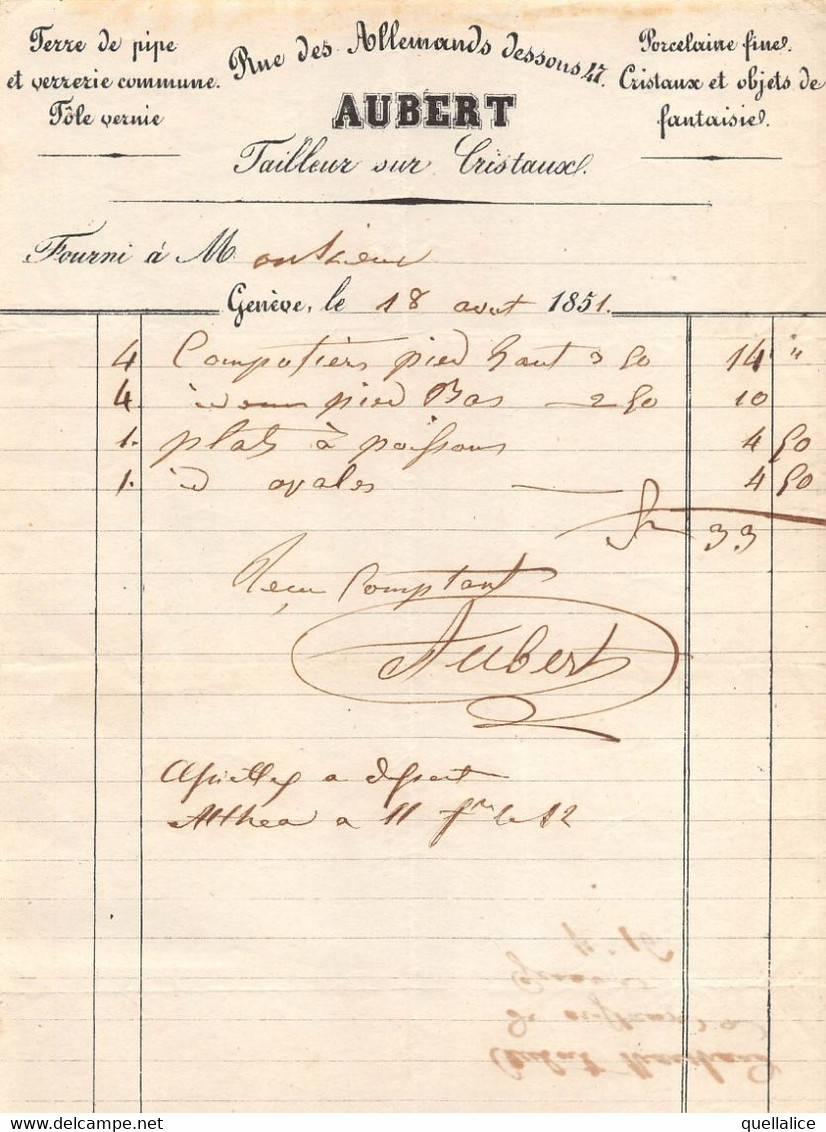 Terre de pipe
et verrerie commune.
Tôle vernie
Rue des Allemands dessous 47.
AUBERT
Tailleur sur Cristaux.
Porcelaine fine.
Cristaux et objets de
fantaisie.
Fourni à Monsieur
Genève, le 18 aout 1851.
4 Compotiers pied haut 3 50 14 "
4. idem pied Bas 2 50 10
1. plats à poissons 4 50
1. id ovales 4 50
fr 33
Recu Comptant
Aubert
Assiettes a dessert
a 11 fr le
quellalice